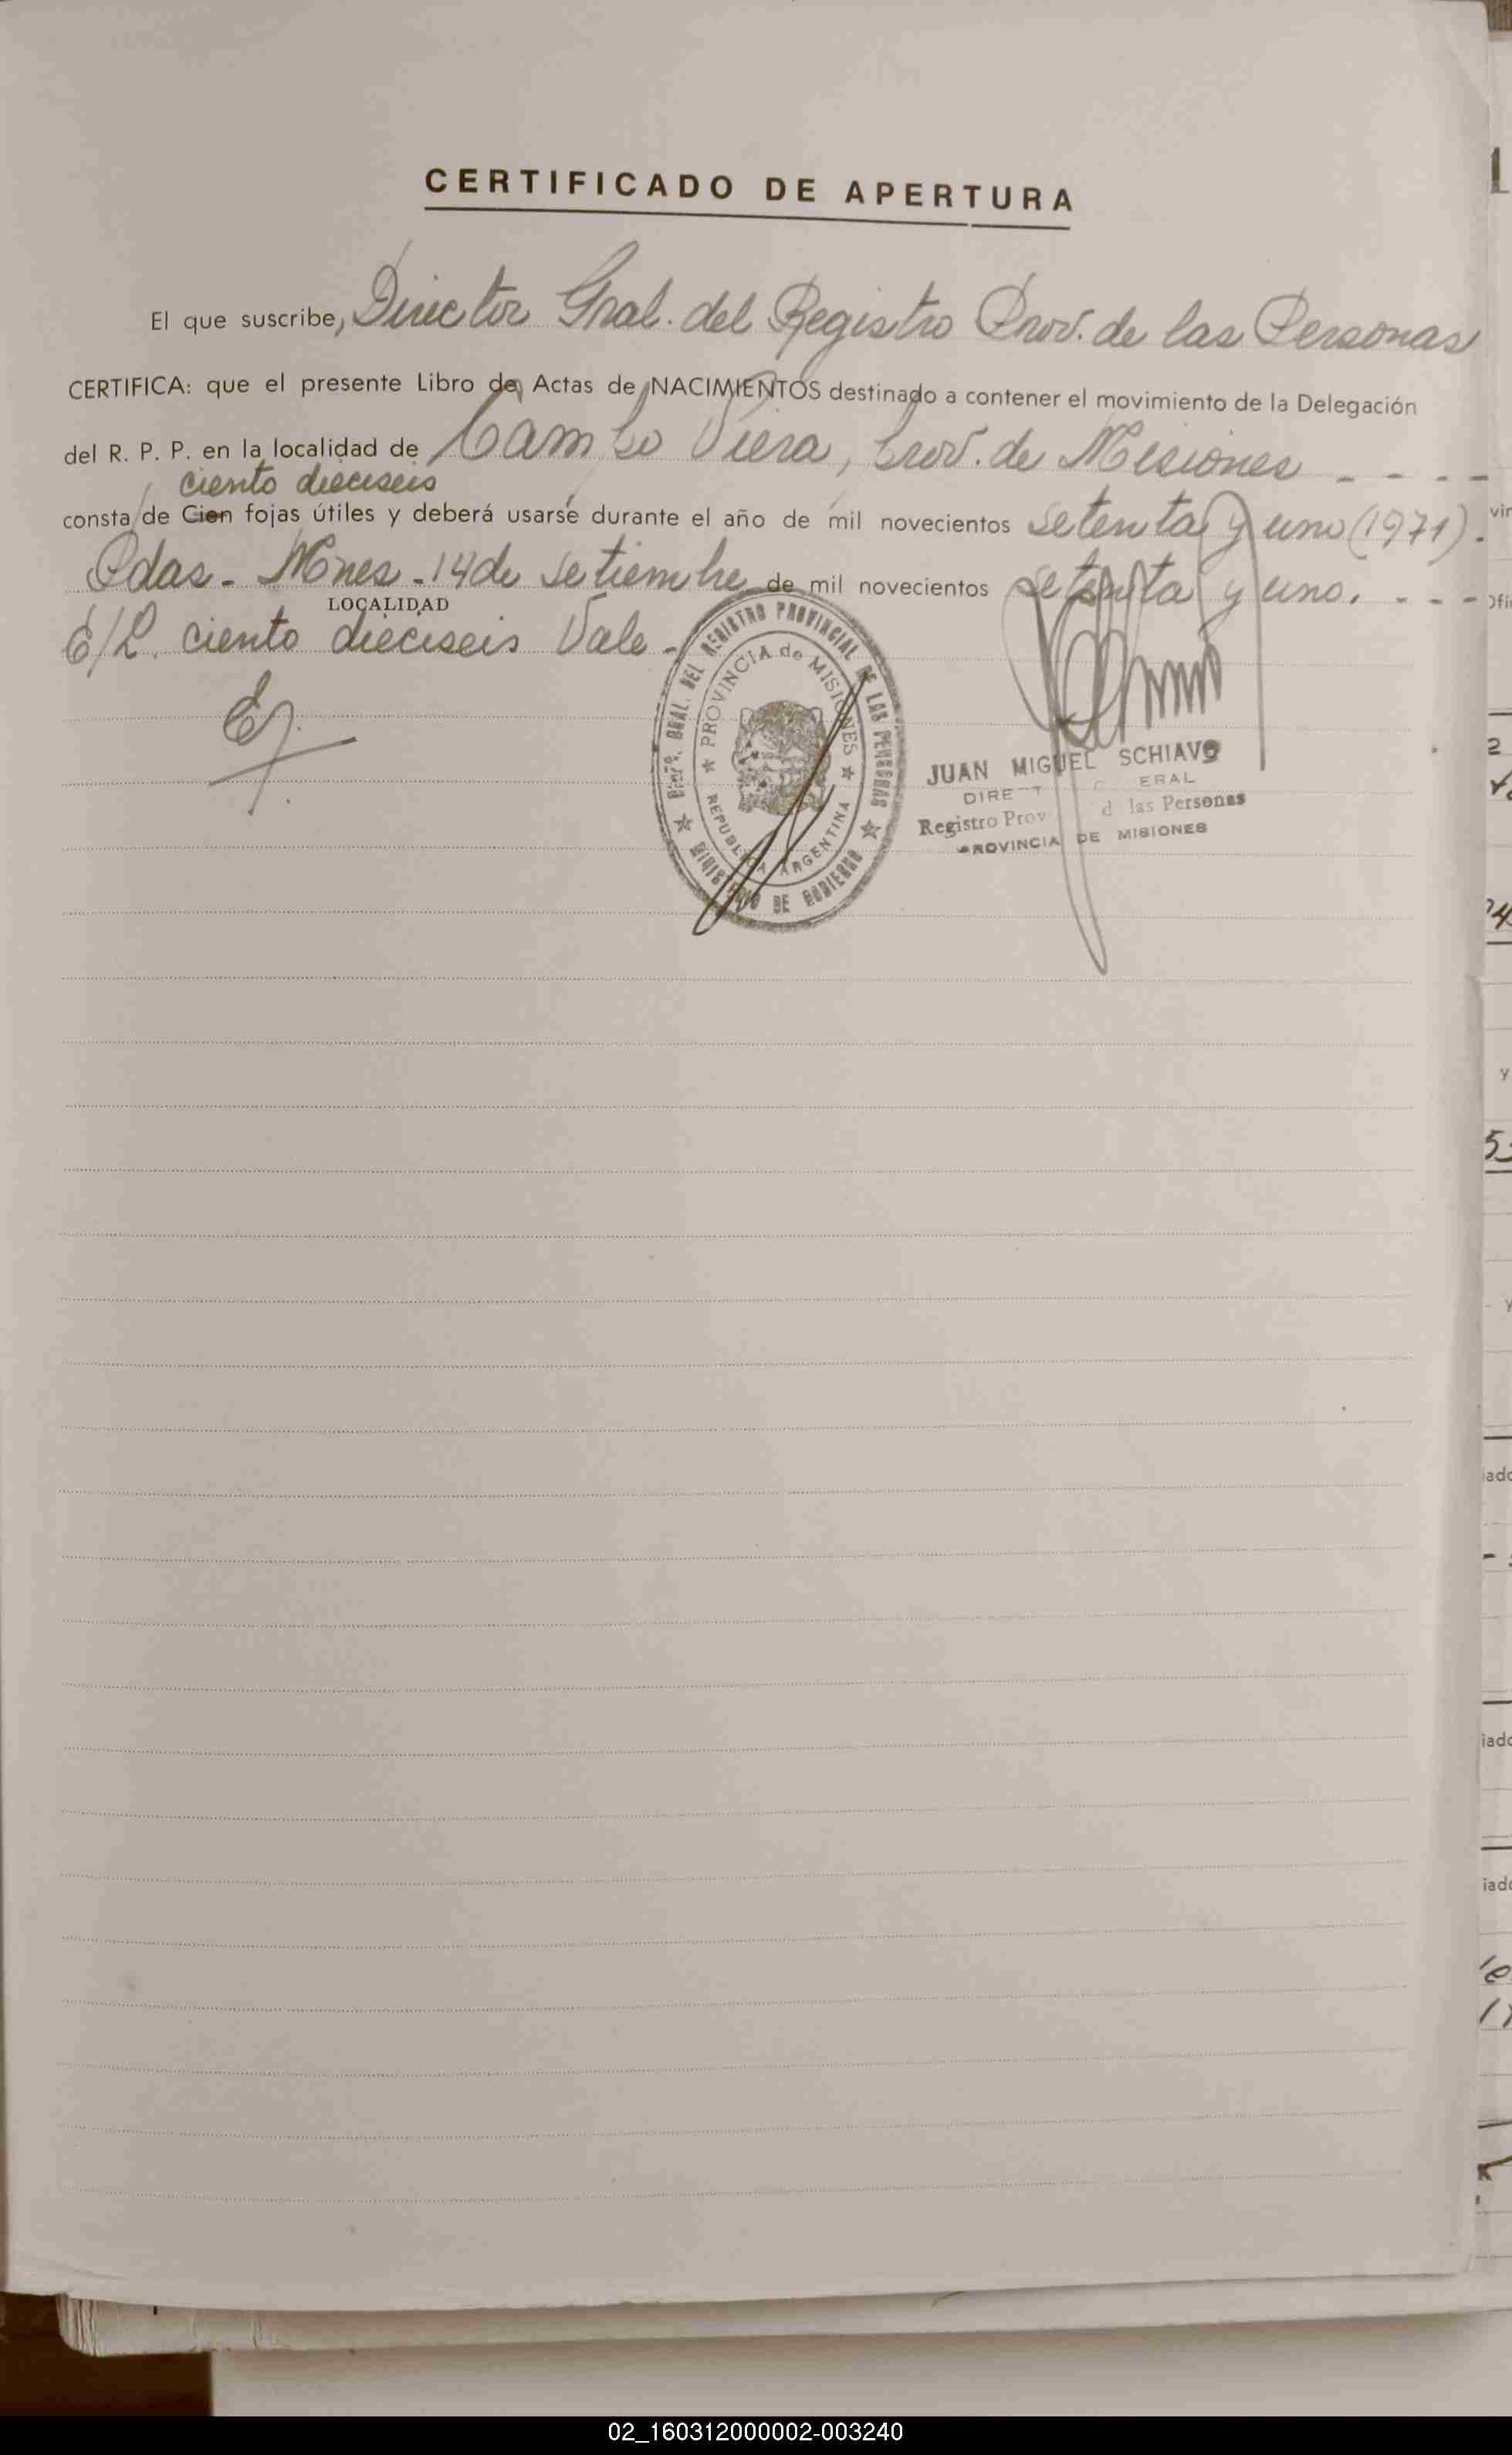 CERTIFICADO DE APERTURA
El que suscribe, Director Gral. del Registro Prov. de las Personas
CERTIFICA: que el presente Libro de Actas de NACIMIENTOS destinado a contener el movimiento de la Delegación
del R. P. P. en la localidad de Campo Viera, Prov. de Misiones - - - -
ciento dieciseis
consta de Cien fojas útiles y deberá usarse durante el año de mil novecientos setenta y uno (1971).
Pdas. - Mnes - 14 de setiembre de mil novecientos setenta y uno. - - -
LOCALIDAD
E/L. ciento dieciseis Vale -
DEL REGISTRO PROVINCIAL DE LAS PERSONAS
MINISTERIO DE GOBIERNO
PROVINCIA de MISIONES
REPUBLICA ARGENTINA
JUAN MIGUEL SCHIAVO
DIRE T ERAL
Registro Prov d las Personas
PROVINCIA DE MISIONES
02_160312000002-003240